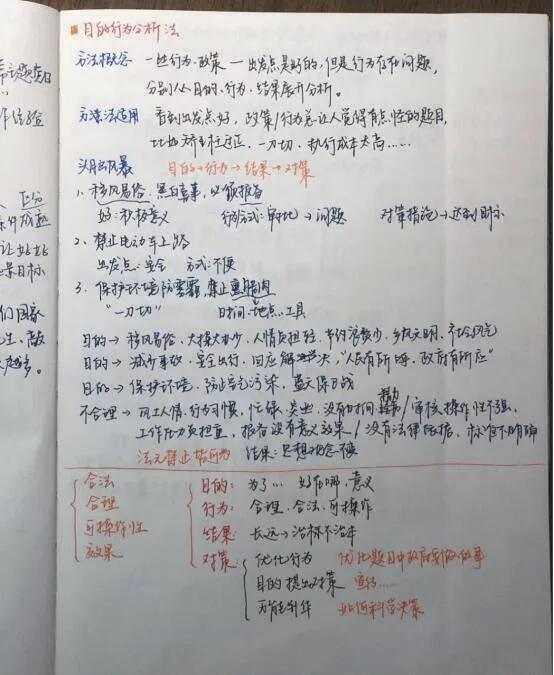 目的行为分析法
方法概念 一些行为、政策 — 出发点是好的,但是行为存在问题,
分别从目的、行为、结果展开分析。
方法适用 看到出发点好,政策/行为总让人觉得有点怪的题目,
比如矫枉过正、一刀切、执行成本太高……
头脑风暴 目的→行为→结果→对策
1、移风易俗、黑白喜事,必须报备
好:积极意义 行为方式:审批→问题 对策措施→达到目标
2、禁止电动车上路
出发点:安全 方式:不便
3、保护环境防雾霾,禁止熏腊肉
"一刀切" 时间、地点、工具
目的→移风易俗、大操大办少、人情负担轻、节约浪费少、乡风文明、社会风气
目的→减少事故、安全出行、回应解决,"人民有所呼、政府有所应"
目的→保护环境、防止空气污染、蓝天保卫战
不合理→风土人情、行为习惯,忙碌、没有时间精力/审核、操作性不强、
工作压力负担重,报备没有意义效果/没有法律依据、标准不明确
法无禁止皆可为 结果:思想观念不便
合法
合理
可操作性
效果
目的:为了… 好在哪,意义
行为:合理、合法、可操作
结果:长远→治标不治本
对策:
优化行为 优化题目中政府要做的事
目的提出对策 宣传……
万能制作 如何科学决策